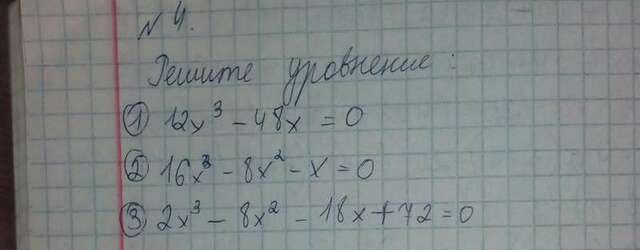 № 4.
Решите уровнение:
① 12x³ - 48x = 0
② 16x³ - 8x² - x = 0
③ 2x³ - 8x² - 18x + 72 = 0